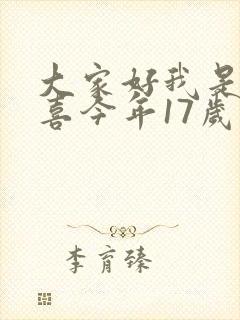 大家好我是
喜今年17歲
李育臻